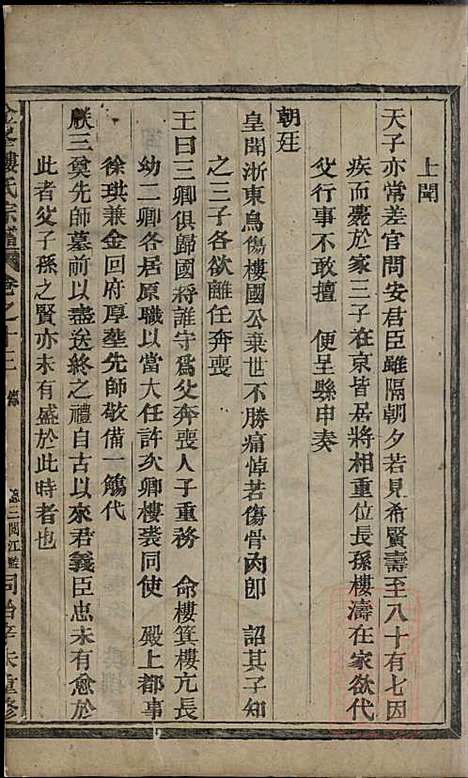 上聞
天子亦常差官問安君臣雖隔朝夕若見希賢壽至八十有七因
疾而薨於家三子在京皆居將相重位長孫樓濤在家欲代
父行事不敢擅 便呈縣申奏
朝廷
皇聞浙東烏傷樓國公棄世不勝痛悼若傷骨肉卽 詔其子知
之三子各欲離任奔喪
王曰三卿俱歸國將誰守爲父奔喪人子重務 命樓箕樓亢長
幼二卿各居原職以當大任許次卿樓裘同使 殿上都事
徐珙兼金回府厚塟先師敬備一觴代
朕三奠先師墓前以盡送終之禮自古以來君義臣忠未有愈於
此者父子孫之賢亦未有盛於此時者也
樓氏宗譜 卷之十三
同治辛未重修